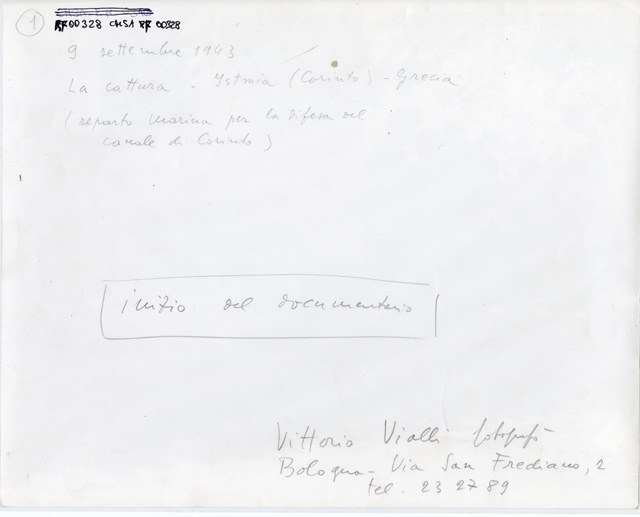 1
RF00328 CMS1 RF 00328
9 settembre 1943
La cattura - Istmia (Corinto) - Grecia
(reparto Marina per la difesa del
canale di Corinto)
inizio del documentario
Vittorio Vialli fotografò
Bologna - Via San Frediano, 2
tel. 23 27 89